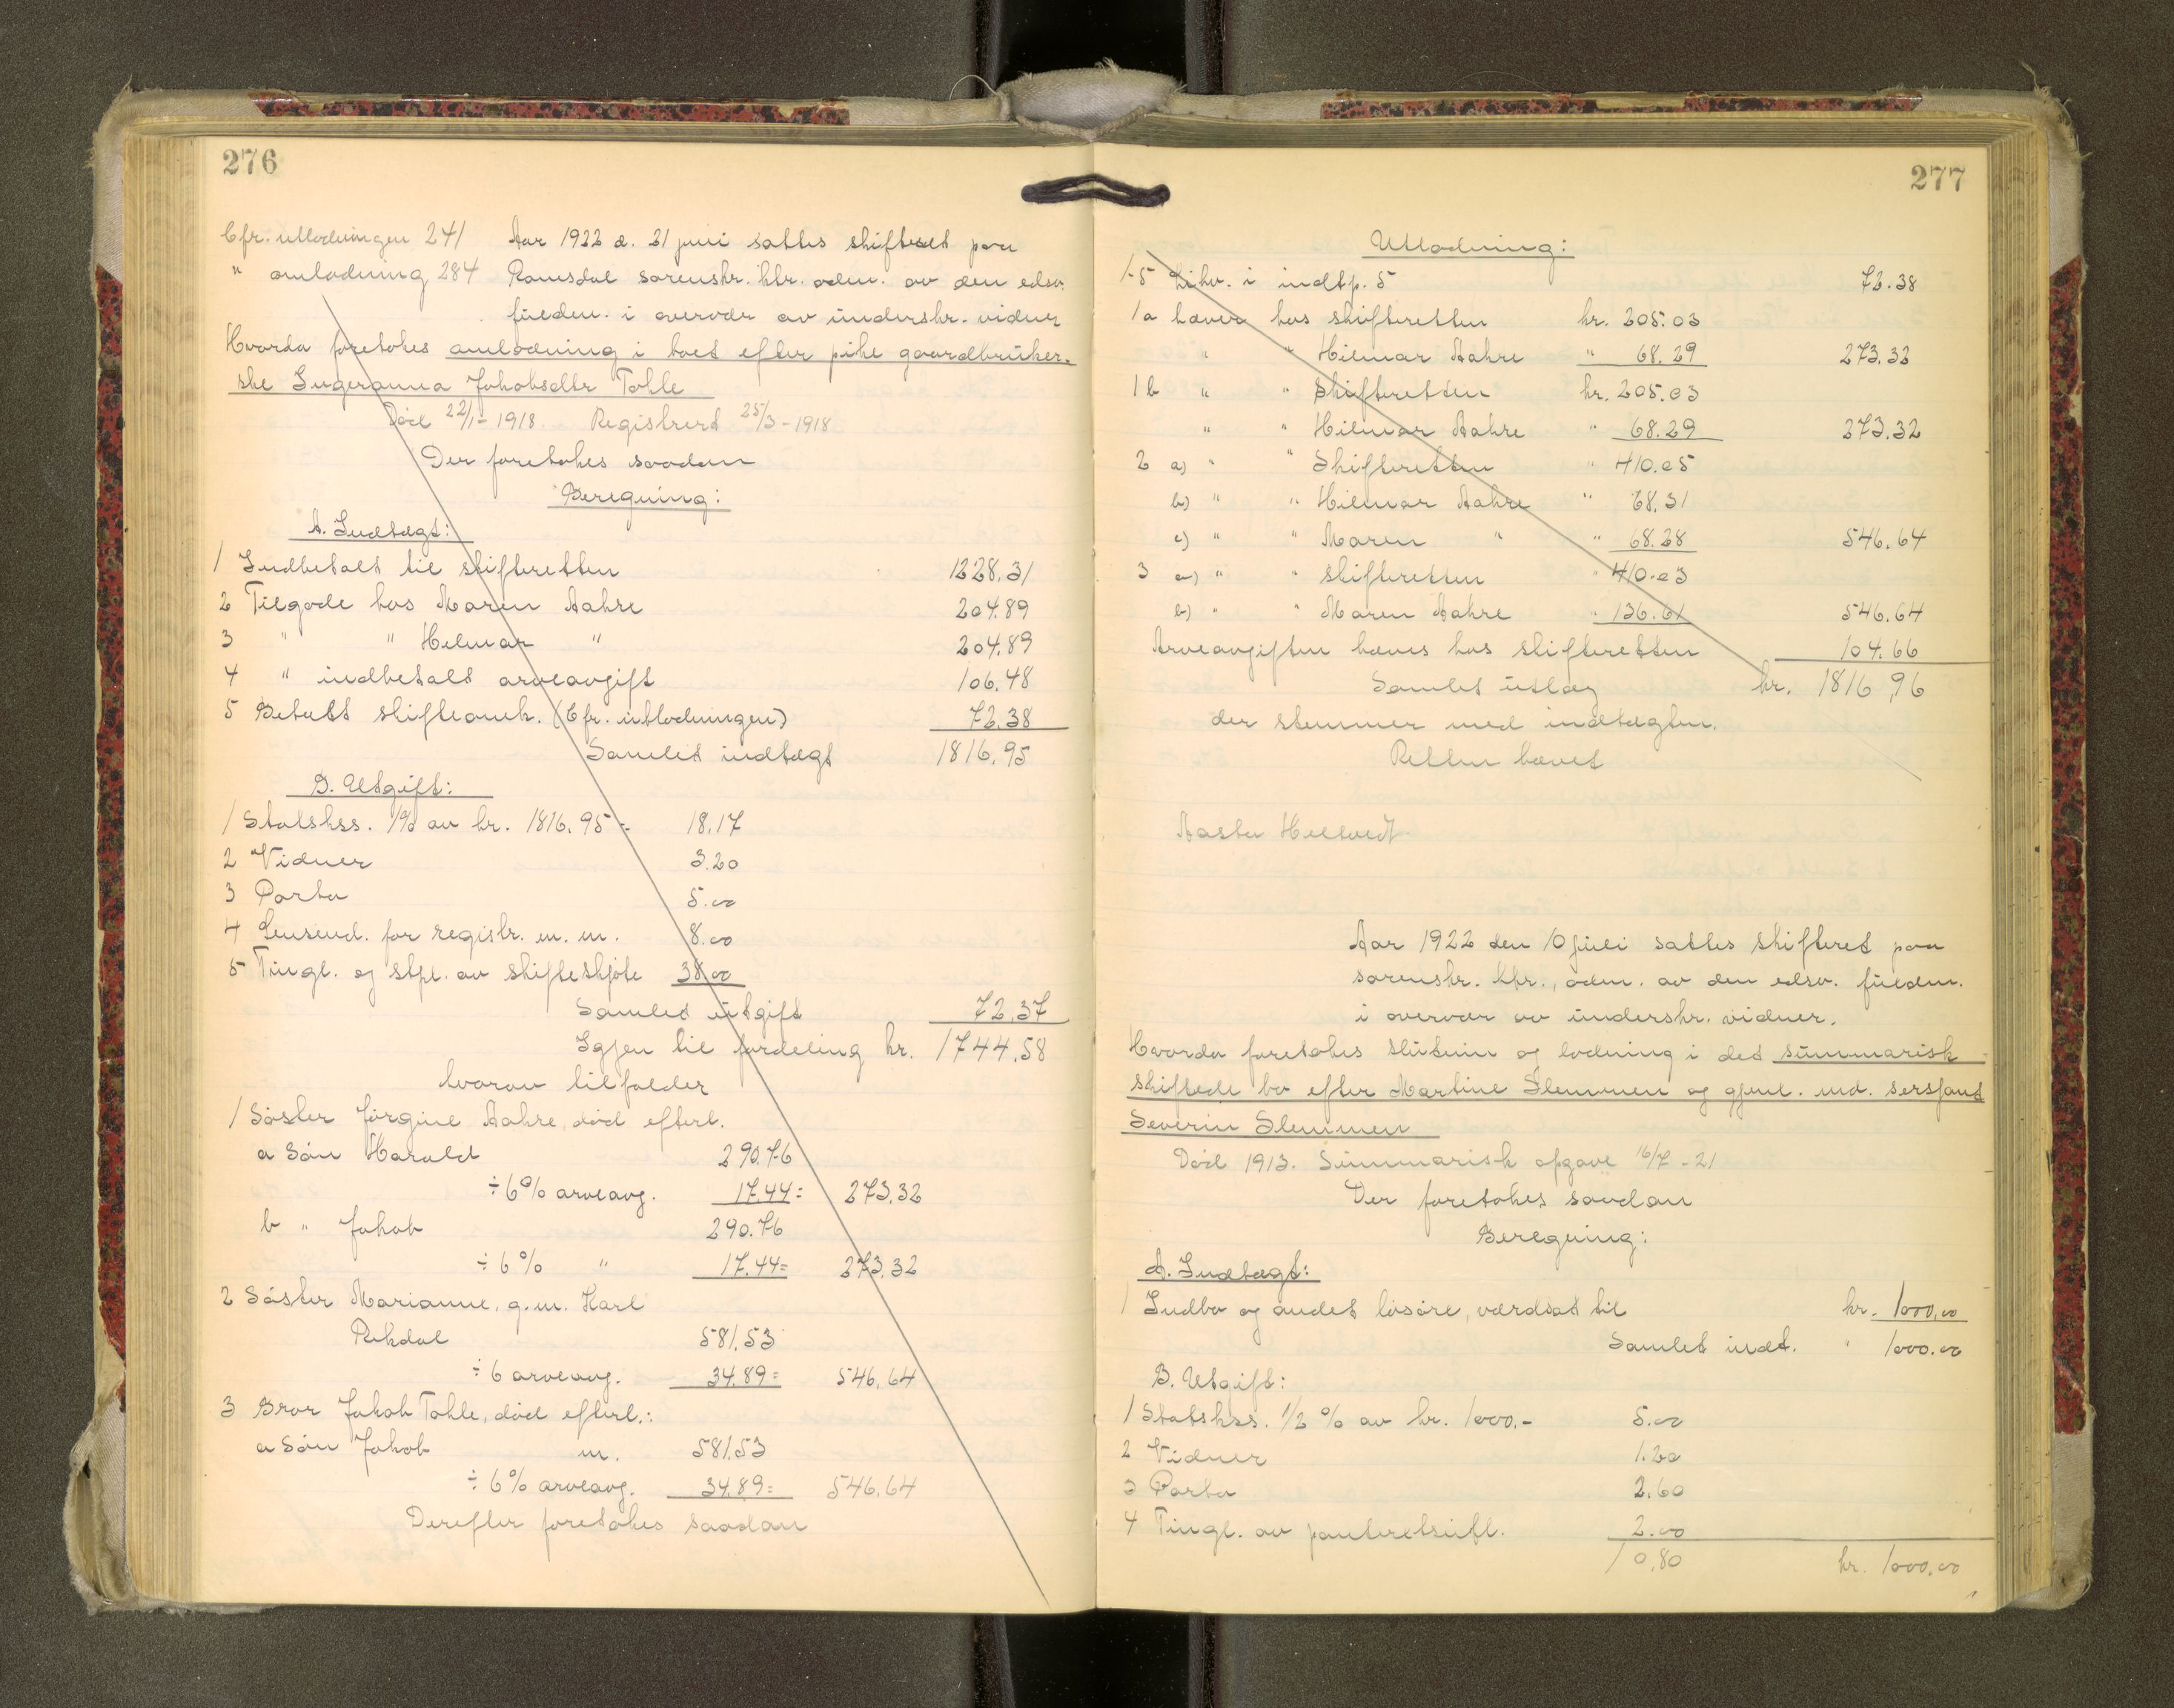 276
Cfr. utlodningen 241 Aar 1922 d. 21 juni sattes skifteret paa
" omlodning 284 Romsdal sorenskr. ktr. adm. av den edsv.
fuldm. i overvær av underskr. vidner
Hvorda foretokes omlodning i boet efter pike gaardbruker-
ske Ingeranna Jakobsdtr Tokle
Død 22/1 - 1918 Registrert 25/3 - 1918
Der foretokes saadan
Beregning:
A. Indtægt:
1 Indbetalt til skifteretten 1228,31
2 Tilgode hos Maren Aakre 204.89
3 " " Hilmar " 204.89
4 " indbetalt arveavgift 106,48
5 Betalt skifteomk. (Cfr. utlodningen) 72.38
Samlet indtægt 1816,95
B. Utgift:
1 Statskss. 1% av kr. 1816.95 = 18.17
2 Vidner 3.20
3 Porto 5.00
4 Lensmd. for registr. m. m. 8.00
5 Tingl. og stpl. av skifteskjøte 38.00
Samlet utgift 72,37
Igjen til fordeling kr. 1744,58
hvorav tilfalder
1 Søster Jørgine Aakre, død efterl.
a Søn Harald 290.76
÷ 6% arveavg. 17.44 = 273,32
b " Jakob 290.76
÷ 6% " 17.44 = 273,32
2 Søster Marianne, g. m. Karl
Rekdal 581,53
÷ 6 arveavg. 34.89 = 546,64
3 Bror Jakob Tokle, død efterl.:
a Søn Jakob m. 581,53
÷ 6% arveavg. 34.89 = 546,64
Derefter foretokes saadan
277
Utlodning:
1-5 Likv. i indtp. 5 72.38
1a hæver hos skifteretten kr. 205.03
" " Hilmar Aakre " 68.29 273.32
1b " " Skifteretten kr. 205.03
" " Hilmar Aakre " 68.29 273,32
2 a) " " Skifteretten " 410.05
b) " " Hilmar Aakre " 68,31
c) " " Maren " " 68.28 546.64
3 a) " " skifteretten " 410.03
b) " " Maren Aakre " 136.61 546.64
Arveavgiften hæves hos skifteretten 104.66
Samlet utlæg kr. 1816,96
der stemmer med indtægten.
Retten hævet
Aasta Hellvedt
Aar 1922 den 10 juli sattes skifteret paa
sorenskr. ktr., adm. av den edsv. fuldm.
i overvær av underskr. vidner.
Hvorda foretokes slutnin og lodning i det summarisk
skiftede bo efter Martine Slemmen og gjenl. md. sersjant
Severin Slemmen
Død 1913. Summarisk opgave 16/7 - 21
Der foretokes saadan
Beregning:
A. Indtægt:
1 Indbo og andet løsøre, værdsat til kr. 1000,00
Samlet indt. " 1000.00
B. Utgift:
1 Statskss. 1/2 % av kr. 1000.- 5.00
2 Vidner 1.20
3 Porto 2.60
4 Tingl. av panteretsutl. 2.00
10,80 kr. 1000,00